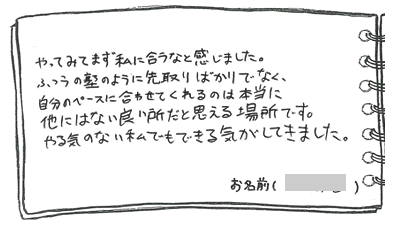 やってみてまず私に合うなと感じました。
ふつうの塾のように先取りばかりでなく、
自分のペースに合わせてくれるのは本当に
他にはない良い所だと思える場所です。
やる気のない私でもできる気がしてきました。
お名前( )